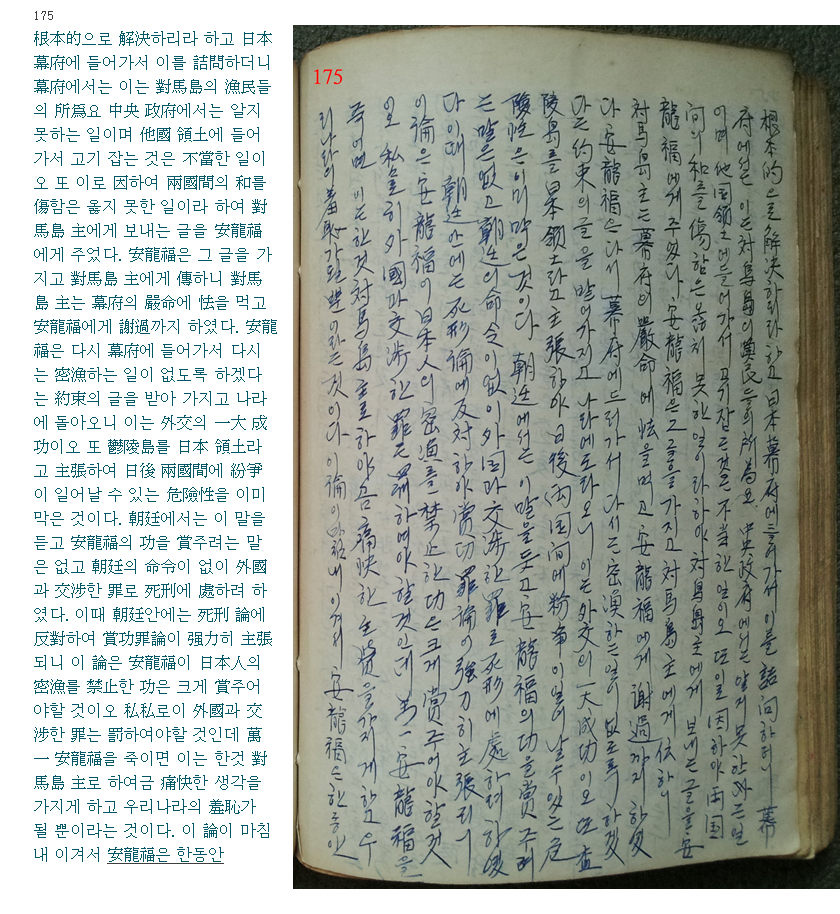 175
根本的으로 解決하리라 하고 日本
幕府에 들어가서 이를 詰問하더니
幕府에서는 이는 對馬島의 漁民들
의 所爲요 中央 政府에서는 알지
못하는 일이며 他國 領土에 들어
가서 고기 잡는 것은 不當한 일이
오 또 이로 因하여 兩國間의 和를
傷함은 옳지 못한 일이라 하여 對
馬島 主에게 보내는 글을 安龍福
에게 주었다. 安龍福은 그 글을 가
지고 對馬島 主에게 傳하니 對馬
島 主는 幕府의 嚴命에 怯을 먹고
安龍福에게 謝過까지 하였다. 安龍
福은 다시 幕府에 들어가서 다시
는 密漁하는 일이 없도록 하겠다
는 約束의 글을 받아 가지고 나라
에 돌아오니 이는 外交의 一大 成
功이오 또 鬱陵島를 日本 領土라
고 主張하여 日後 兩國間에 紛爭
이 일어날 수 있는 危險性을 이미
막은 것이다. 朝廷에서는 이 말을
듣고 安龍福의 功을 賞주려는 말
은 없고 朝廷의 命令이 없이 外國
과 交涉한 罪로 死刑에 處하려 하
였다. 이때 朝廷안에는 死刑 論에
反對하여 賞功罪論이 强力히 主張
되니 이 論은 安龍福이 日本人의
密漁를 禁止한 功은 크게 賞주어
야할 것이오 私私로이 外國과 交
涉한 罪는 罰하여야할 것인데 萬
一 安龍福을 죽이면 이는 한것 對
馬島 主로 하여금 痛快한 생각을
가지게 하고 우리나라의 羞恥가
될 뿐이라는 것이다. 이 論이 마침
내 이겨서 安龍福은 한동안
175
根本的으로 解決하리라 하고 日本幕府에 들러가서 이를 詰問하더니 幕
府에서는 이는 対馬島의 漁民들의 所為요 中央政府에서는 알지 못하는 일
이며 他国領土에 들어가서 고기 잡는 것은 不当한 일이오 또 이로 因하야 両国
间의 和를 傷함은 옳지 못한 일이라 하야 対馬島主에게 보내는 글을 安
龍福에게 주었다. 安龍福은 그 글을 가지고 対馬島主에게 伝하니
対馬島主는 幕府의 嚴命에 怯을 먹고 安龍福에게 謝過까지 하였
다 安龍福은 다시 幕府에 드러가서 다시는 密漁하는 일이 없도록 하겟
다는 約束의 글을 받어가지고 나라에 도라오니 이는 外交의 一大成功이오 또 欝
陵島를 日本領土라고 主張하야 日後 両国间에 紛争이 일어날 수 있는 危
険性은 이미 막은 것이다. 朝廷에서는 이 말을 듯고 安龍福의 功을 賞주려
는 말은 없고 朝廷의 命令이 없이 外国과 交渉한 罪로 死形에 處하려 하였
다 이때 朝廷안에는 死形論에 反対하야 賞功罪論이 強力히 主張되니
이 論은 安龍福이 日本人의 密漁를 禁止한 功은 크게 賞주어야 할 것
이오 私로히 外國과 交渉한 罪는 罰하여야 할 것인데 萬一 安龍福을
죽이면 이는 한것 対馬島主로 하야금 痛快한 生覺을 가지게 하고 우
리나라의 羞恥가 될 뿐이라는 것이다 이 論이 마침내 이겨서 安龍福은 한동안